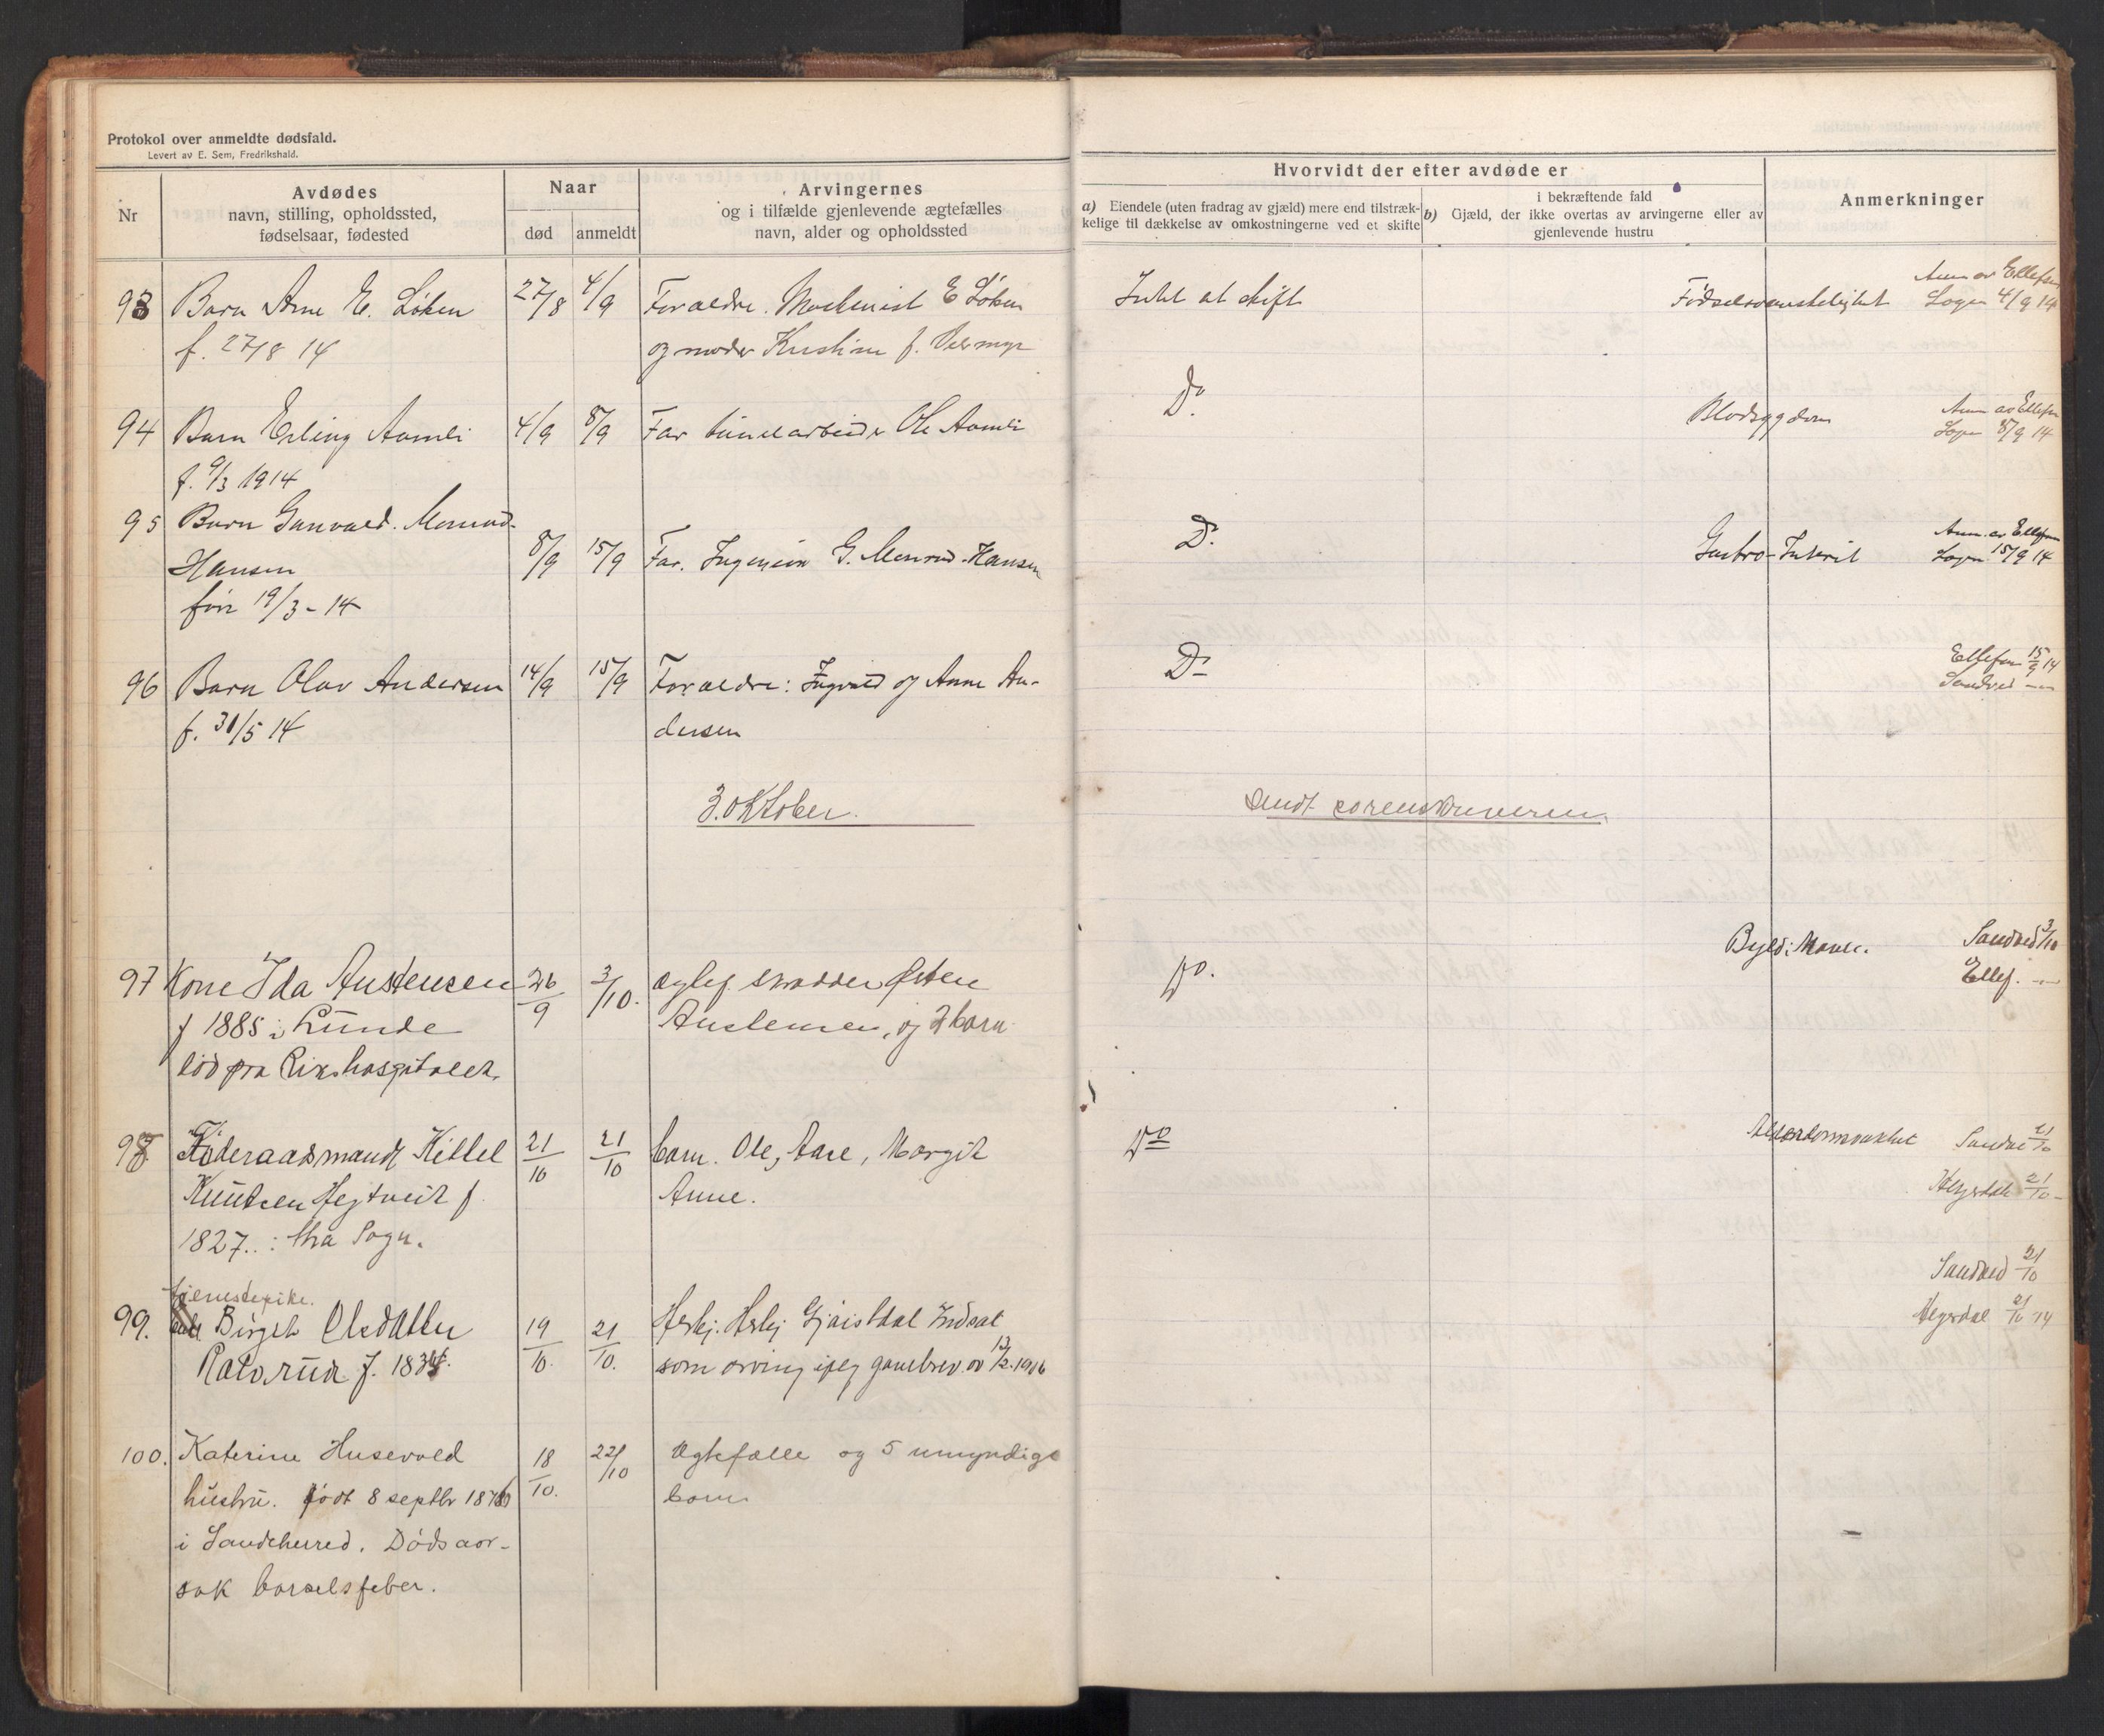 Protokol over anmeldte dødsfald.
Levert av E. Sem, Fredrikshald.
Nr
Avdødes
navn, stilling, opholdssted,
fødselsaar, fødested
Naar
død
anmeldt
Arvingernes
og i tilfælde gjenlevende ægtefælles
navn, alder og opholdssted
Hvorvidt der efter avdøde er
a) Eiendele (uten fradrag av gjæld) mere end tilstræk-
kelige til dækkelse av omkostningerne ved et skifte
i bekræftende fald
b) Gjæld, der ikke overtas av arvingerne eller av
gjenlevende hustru
Anmerkninger
93 Barn Arne E. Løken 27/8 4/9 Forældre. Maskinist E Løken Intet at skifte Fødselsvanskelighet Anm av Ellefsen
f. 27/8 14 og moder Kristine f. Vermyr Sogn 4/9 14
94 Barn Erling Aamli 4/9 8/9 Far tunelarbeider Ole Aamli Do Blodsygdom Anm av Ellefsen
f. 9/3 1914 Sogn 8/9 14
95 Barn Gunvald. Monrad- 8/9 15/9 Far. Ingeniør G. Monrad-Hansen Do Gastro-Interit Anm. av Ellefsen
Hansen Sogn 15/9 14
før 19/3-14
96 Barn Olav Andersen 14/9 15/9 Forældre: Ingvald og Anne An- Do Ellefsen 15/9 14
f. 31/5 14 dersen Sandved —"—
3. oktober. Sendt sorenskriveren.
97 Kone Ida Austensen 26/9 3/10. ægtef. skrædder Østen Do. Byld i Maven. Sandved 3/10
f 1885 i Lunde Austensen, og 2 barn Ellef. —"—
død paa Rikshospitalet.
98 Føderaadsmand Kittel 21/10 21/10 barn. Ole, Aase, Margit Do Alderdomssvakhet Sandved 21/10
Knutsen Hegtveit f. Anne. Hegrdal 21/10
1827.
tjenestepike.
99. Birgit Olsdatter 19/10 21/10. Herbj. Herbj Gjaisdal Indsat Sandved 21/10
f. 1834. som arving ifølg gavebrev av 13/2. 1906 Hegrdal 21/10 14
100. Katerine Husevold 18/10. 22/10 Ægtefælle og 5 umyndige
hustru. født 8 septbr 1876 barn
i Sandeherred. Dødsaar-
sak barselsfeber.